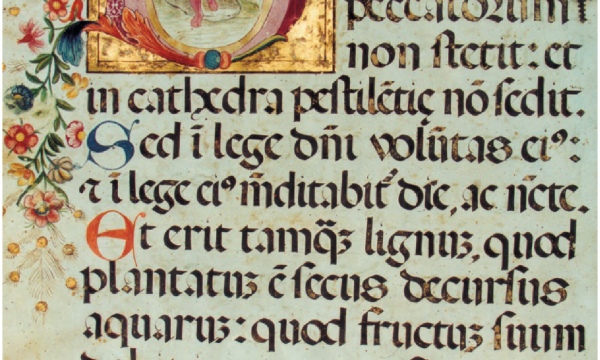 peccatorum
non stetit: et
in cathedra pestilētię nō sedit.
Sed ī lege dn̄i volūtas eiꝰ:
⁊ ī lege eiꝰ m̄ditabit᷑ die, ac n̄cte.
Et erit tamq̄ꝫ lignuꝫ, quod
plantatuꝫ ē secus decursus
aquaruꝫ: quod fructuꝫ suum